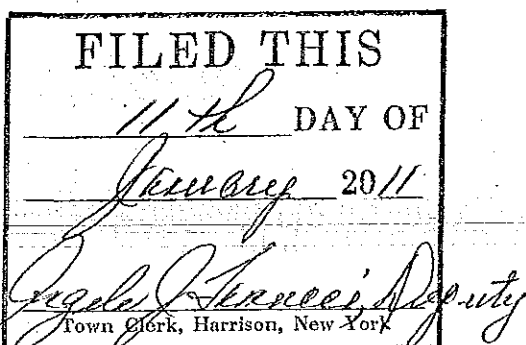 FILED THIS
11th DAY OF
January 2011
Angela J. Deputy
Town Clerk, Harrison, New York